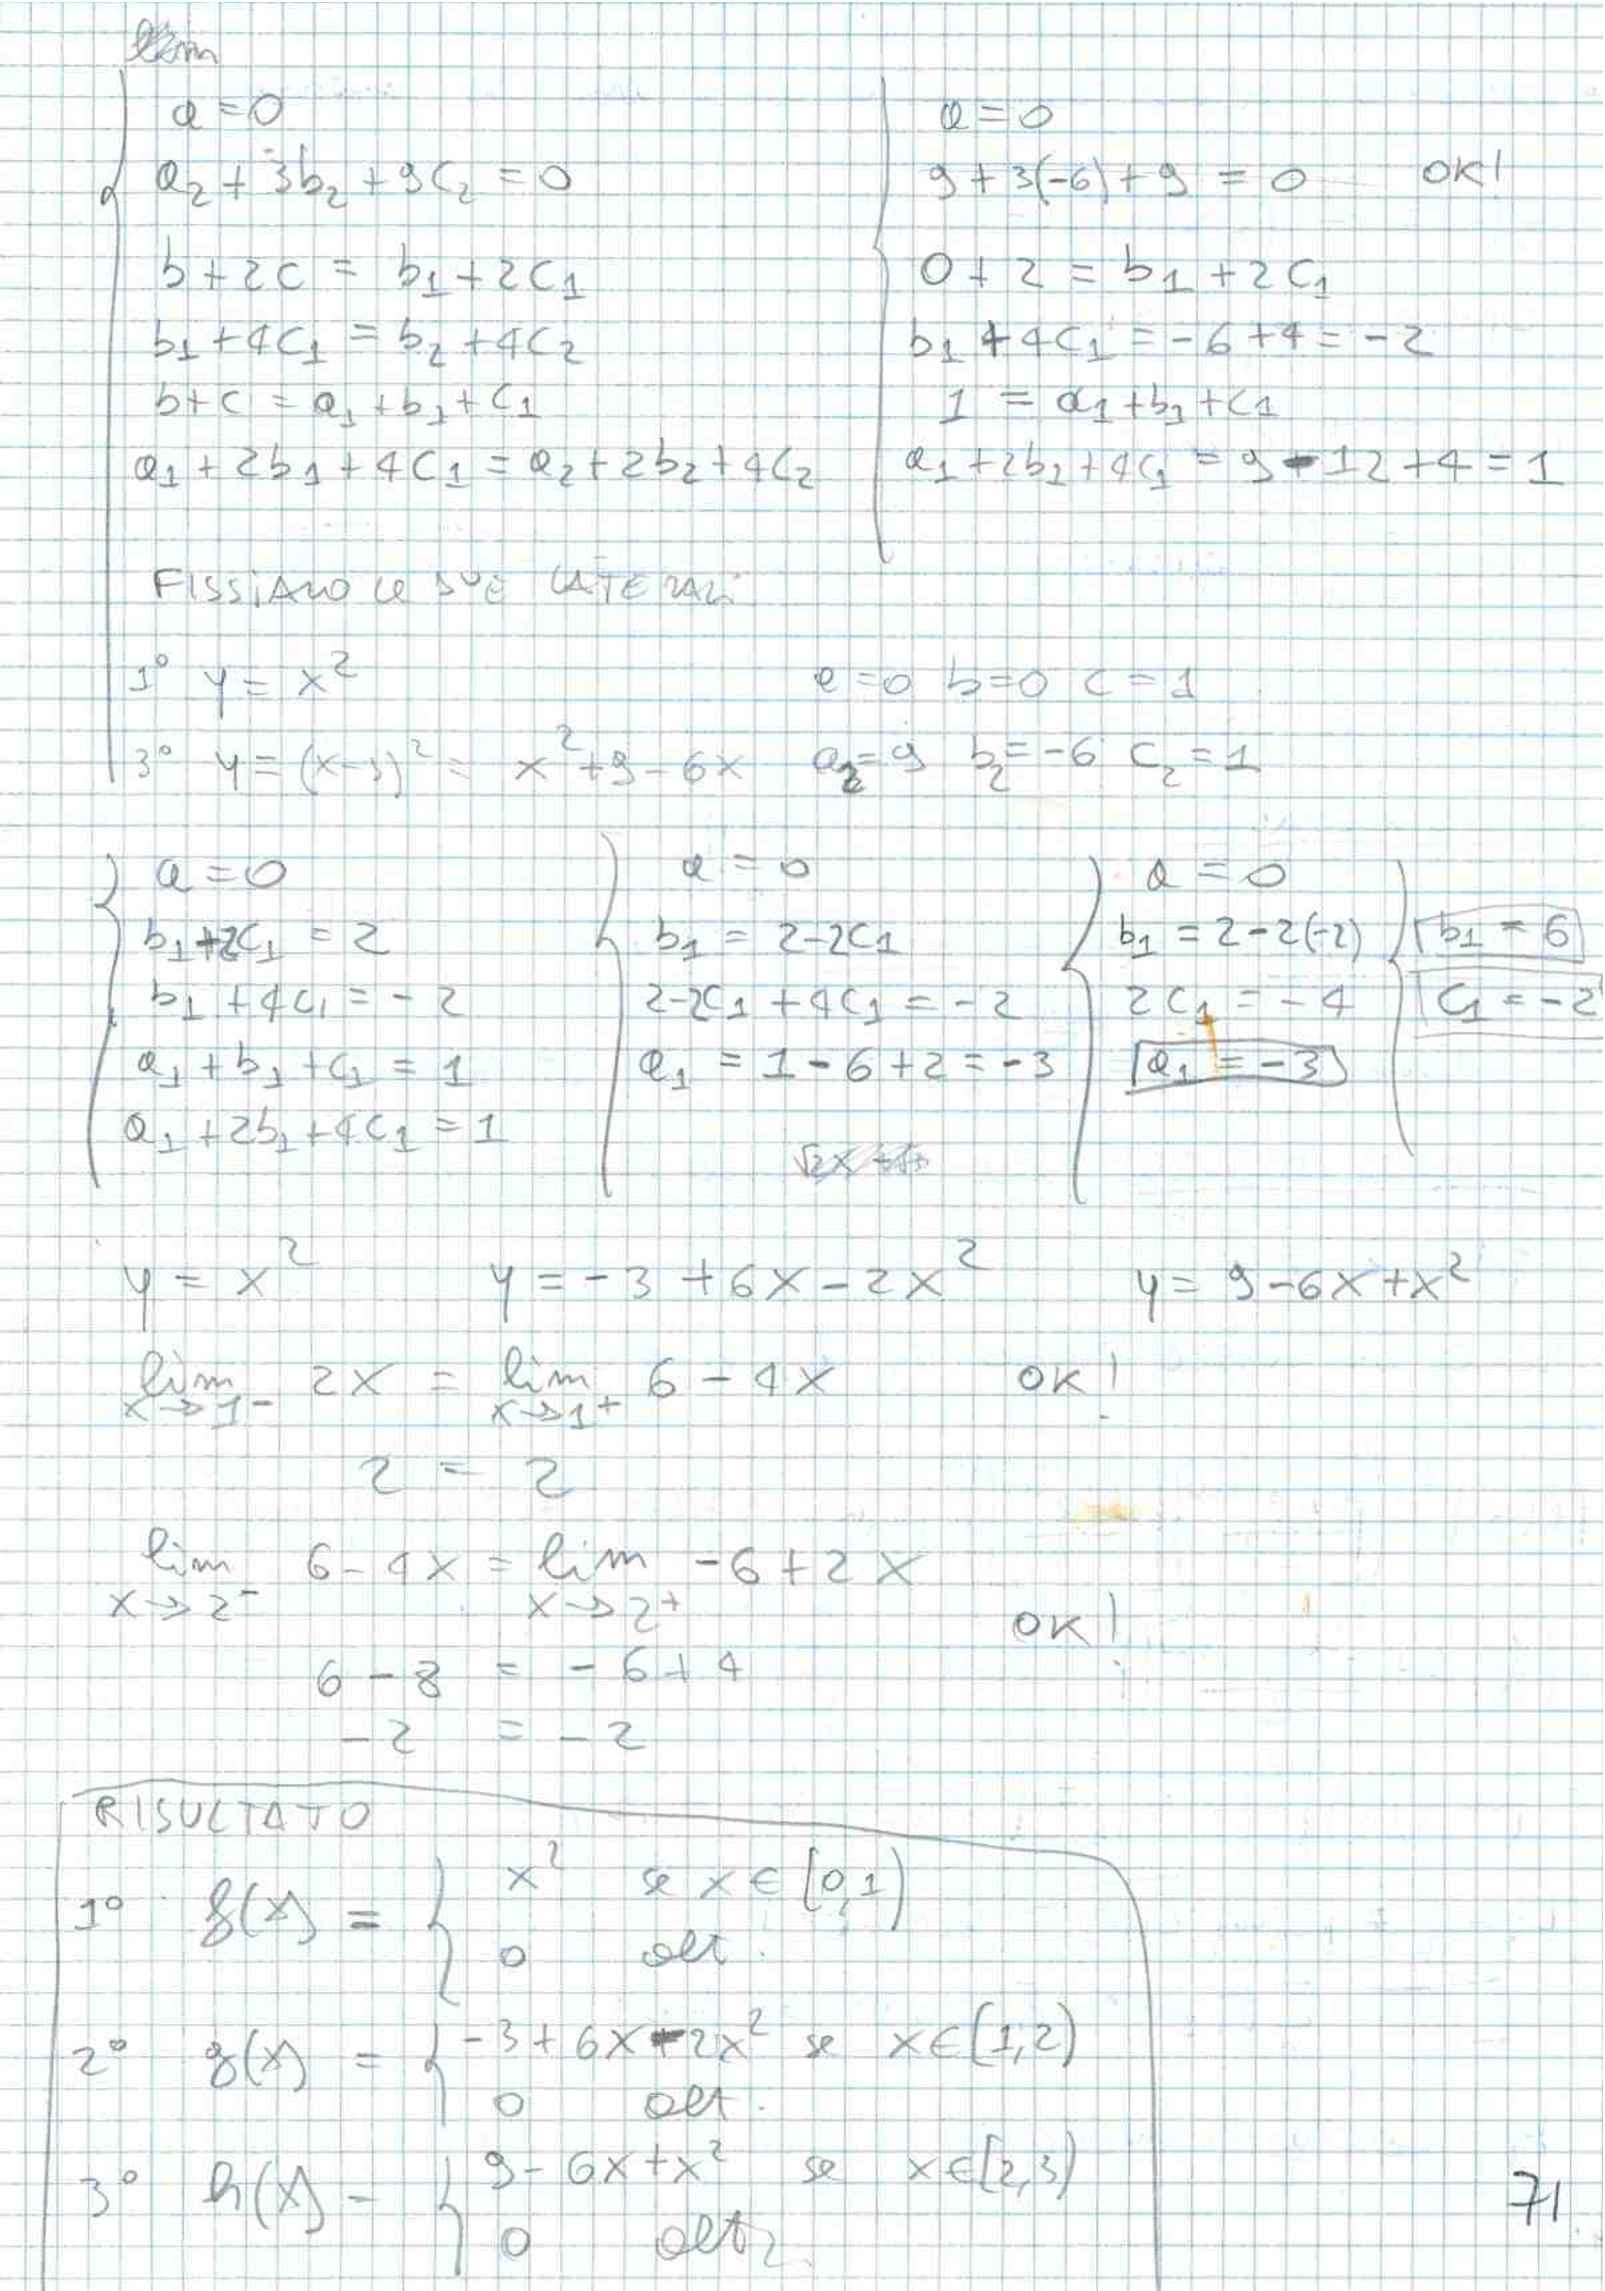 lim
a = 0
a₂ + 3b₂ + 9c₂ = 0
b + 2c = b₁ + 2c₁
b₁ + 4c₁ = b₂ + 4c₂
b + c = a₁ + b₁ + c₁
a₁ + 2b₁ + 4c₁ = a₂ + 2b₂ + 4c₂
a = 0
9 + 3(-6) + 9 = 0 OK!
0 + 2 = b₁ + 2c₁
b₁ + 4c₁ = -6 + 4 = -2
1 = a₁ + b₁ + c₁
a₁ + 2b₁ + 4c₁ = 9 - 12 + 4 = 1
FISSIAMO le DUE LATERALI
1° y = x² a = 0 b = 0 c = 1
3° y = (x-3)² = x² + 9 - 6x a₂ = 9 b₂ = -6 c₂ = 1
a = 0
b₁ + 2c₁ = 2
b₁ + 4c₁ = -2
a₁ + b₁ + c₁ = 1
a₁ + 2b₁ + 4c₁ = 1
a = 0
b₁ = 2 - 2c₁
2 - 2c₁ + 4c₁ = -2
a₁ = 1 - 6 + 2 = -3
a = 0
b₁ = 2 - 2(-2)
2c₁ = -4
a₁ = -3
b₁ = 6
c₁ = -2
y = x² y = -3 + 6x - 2x² y = 9 - 6x + x²
lim 2x = lim 6 - 4x OK!
x→1⁻ x→1⁺
2 = 2
lim 6 - 4x = lim -6 + 2x
x→2⁻ x→2⁺
OK!
6 - 8 = -6 + 4
-2 = -2
RISULTATO
1° f(x) = { x² se x ∈ [0,1)
0 alt.
2° g(x) = { -3 + 6x - 2x² se x ∈ [1,2)
0 alt.
3° h(x) = { 9 - 6x + x² se x ∈ [2,3)
0 alt.
71